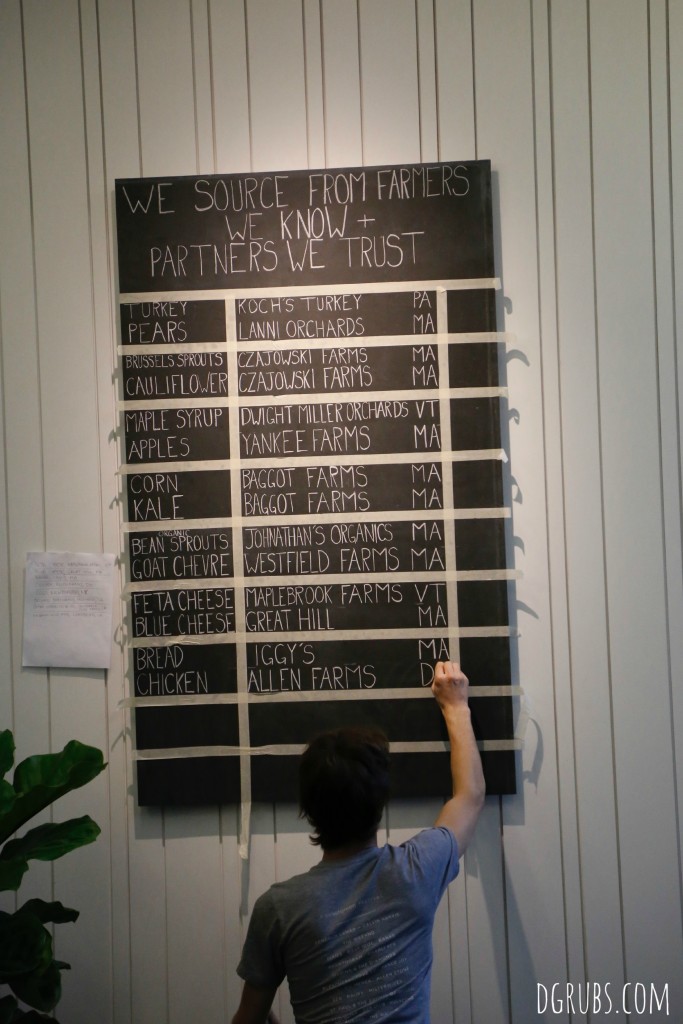 WE SOURCE FROM FARMERS
WE KNOW +
PARTNERS WE TRUST
TURKEY KOCH'S TURKEY PA
PEARS LANNI ORCHARDS MA
BRUSSELS SPROUTS CZAJOWSKI FARMS MA
CAULIFLOWER CZAJOWSKI FARMS MA
MAPLE SYRUP DWIGHT MILLER ORCHARDS VT
APPLES YANKEE FARMS MA
CORN BAGGOT FARMS MA
KALE BAGGOT FARMS MA
ORGANIC
BEAN SPROUTS JOHNATHAN'S ORGANICS MA
GOAT CHEVRE WESTFIELD FARMS MA
FETA CHEESE MAPLEBROOK FARMS VT
BLUE CHEESE GREAT HILL MA
BREAD IGGY'S MA
CHICKEN ALLEN FARMS D
DGRUBS.COM